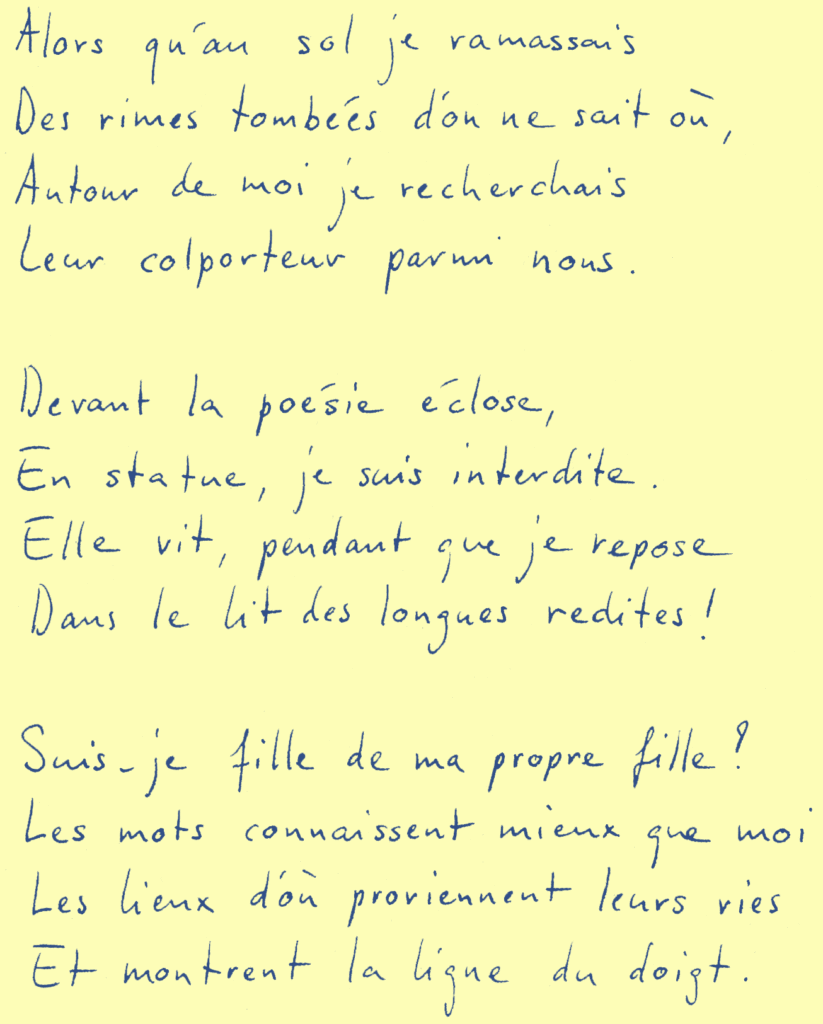 Alors qu'au sol je ramassais
Des rimes tombées d'on ne sait où,
Autour de moi je recherchais
Leur colporteur parmi nous.
Devant la poésie éclose,
En statue, je suis interdite.
Elle vit, pendant que je repose
Dans le lit des longues redites !
Suis-je fille de ma propre fille ?
Les mots connaissent mieux que moi
Les lieux d'où proviennent leurs vies
Et montrent la ligne du doigt.